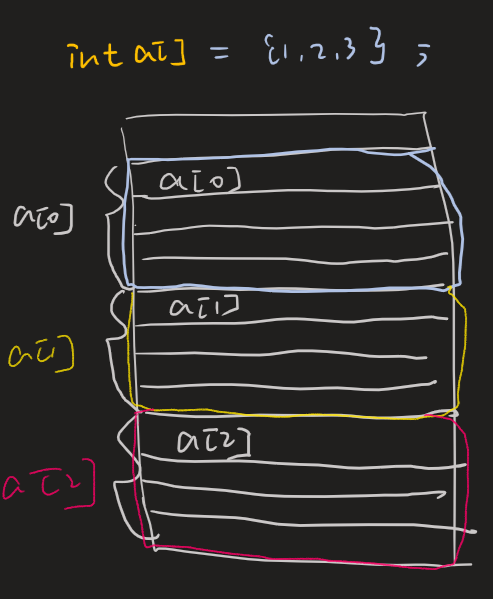 int a[] = {1,2,3} ;
a[0]
a[0]
a[1]
a[1]
a[2]
a[2]